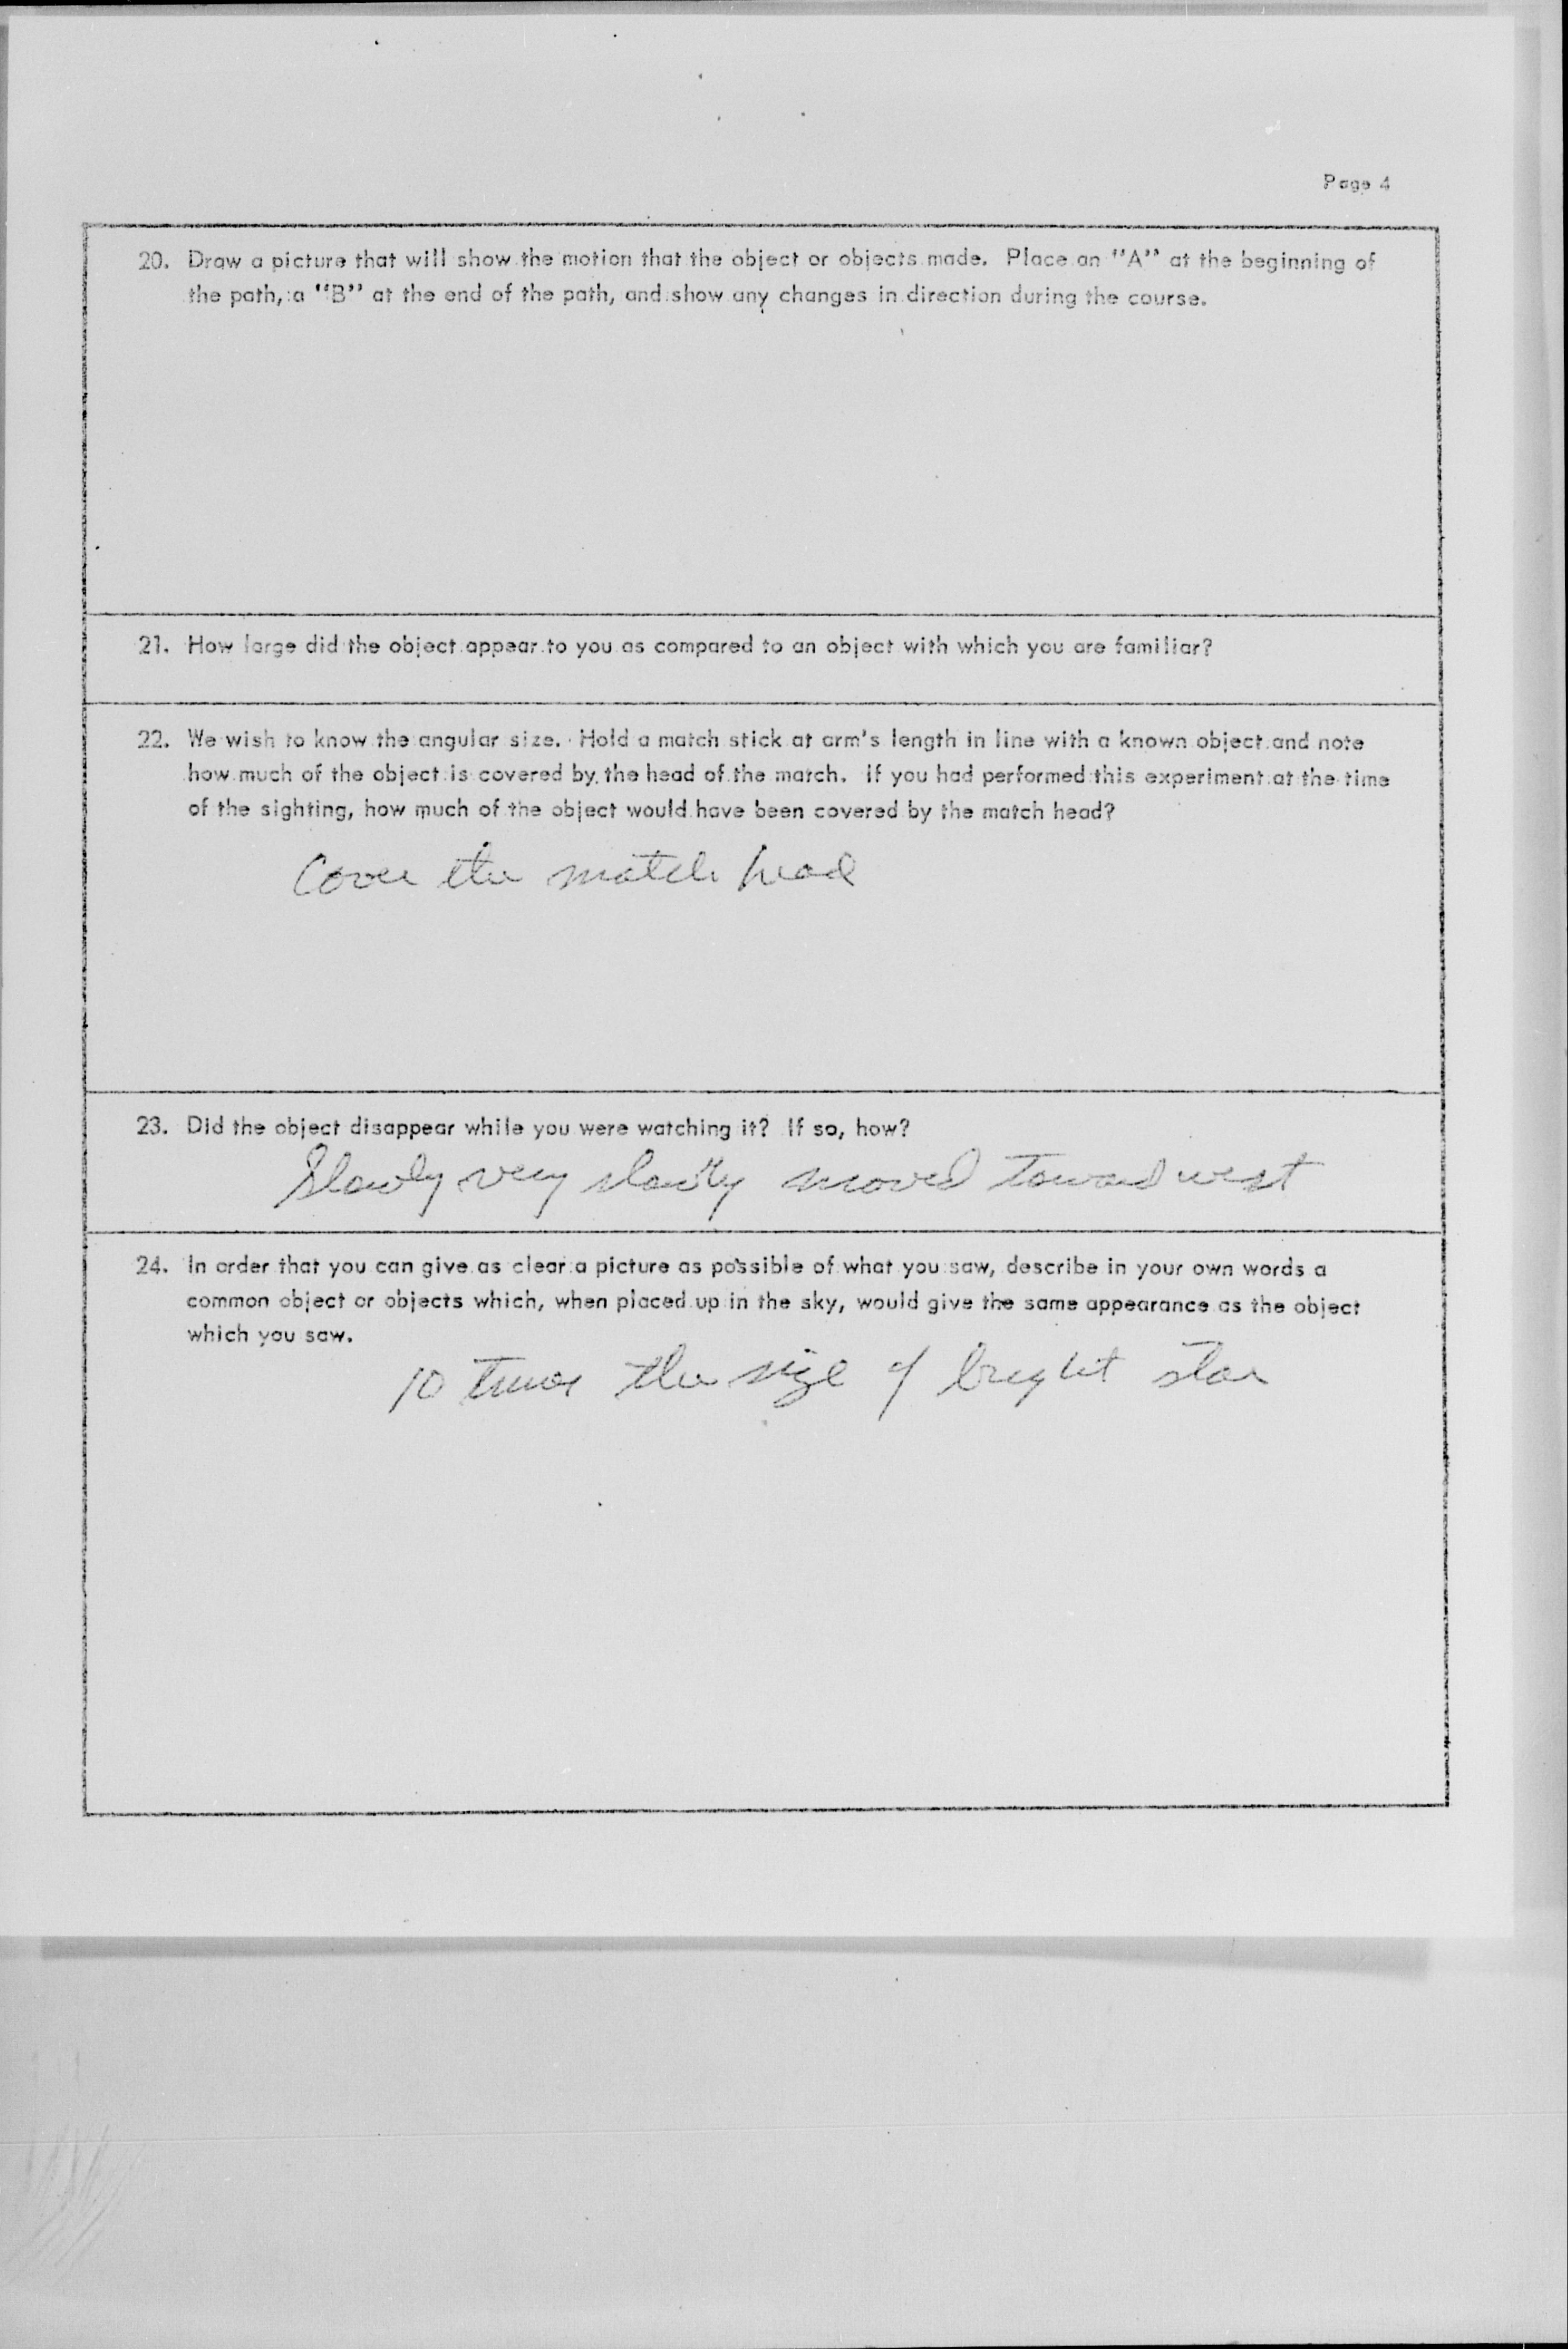 Page 4
20. Draw a picture that will show the motion that the object or objects made. Place an "A" at the beginning of
the path, a "B" at the end of the path, and show any changes in direction during the course.
21. How large did the object appear to you as compared to an object with which you are familiar?
22. We wish to know the angular size. Hold a match stick at arm's length in line with a known object and note
how much of the object is covered by the head of the match. If you had performed this experiment at the time
of the sighting, how much of the object would have been covered by the match head?
Cover the match head
23. Did the object disappear while you were watching it? If so, how?
Slowly very slowly moved toward west
24. In order that you can give as clear a picture as possible of what you saw, describe in your own words a
common object or objects which, when placed up in the sky, would give the same appearance as the object
which you saw.
10 times the size of bright star